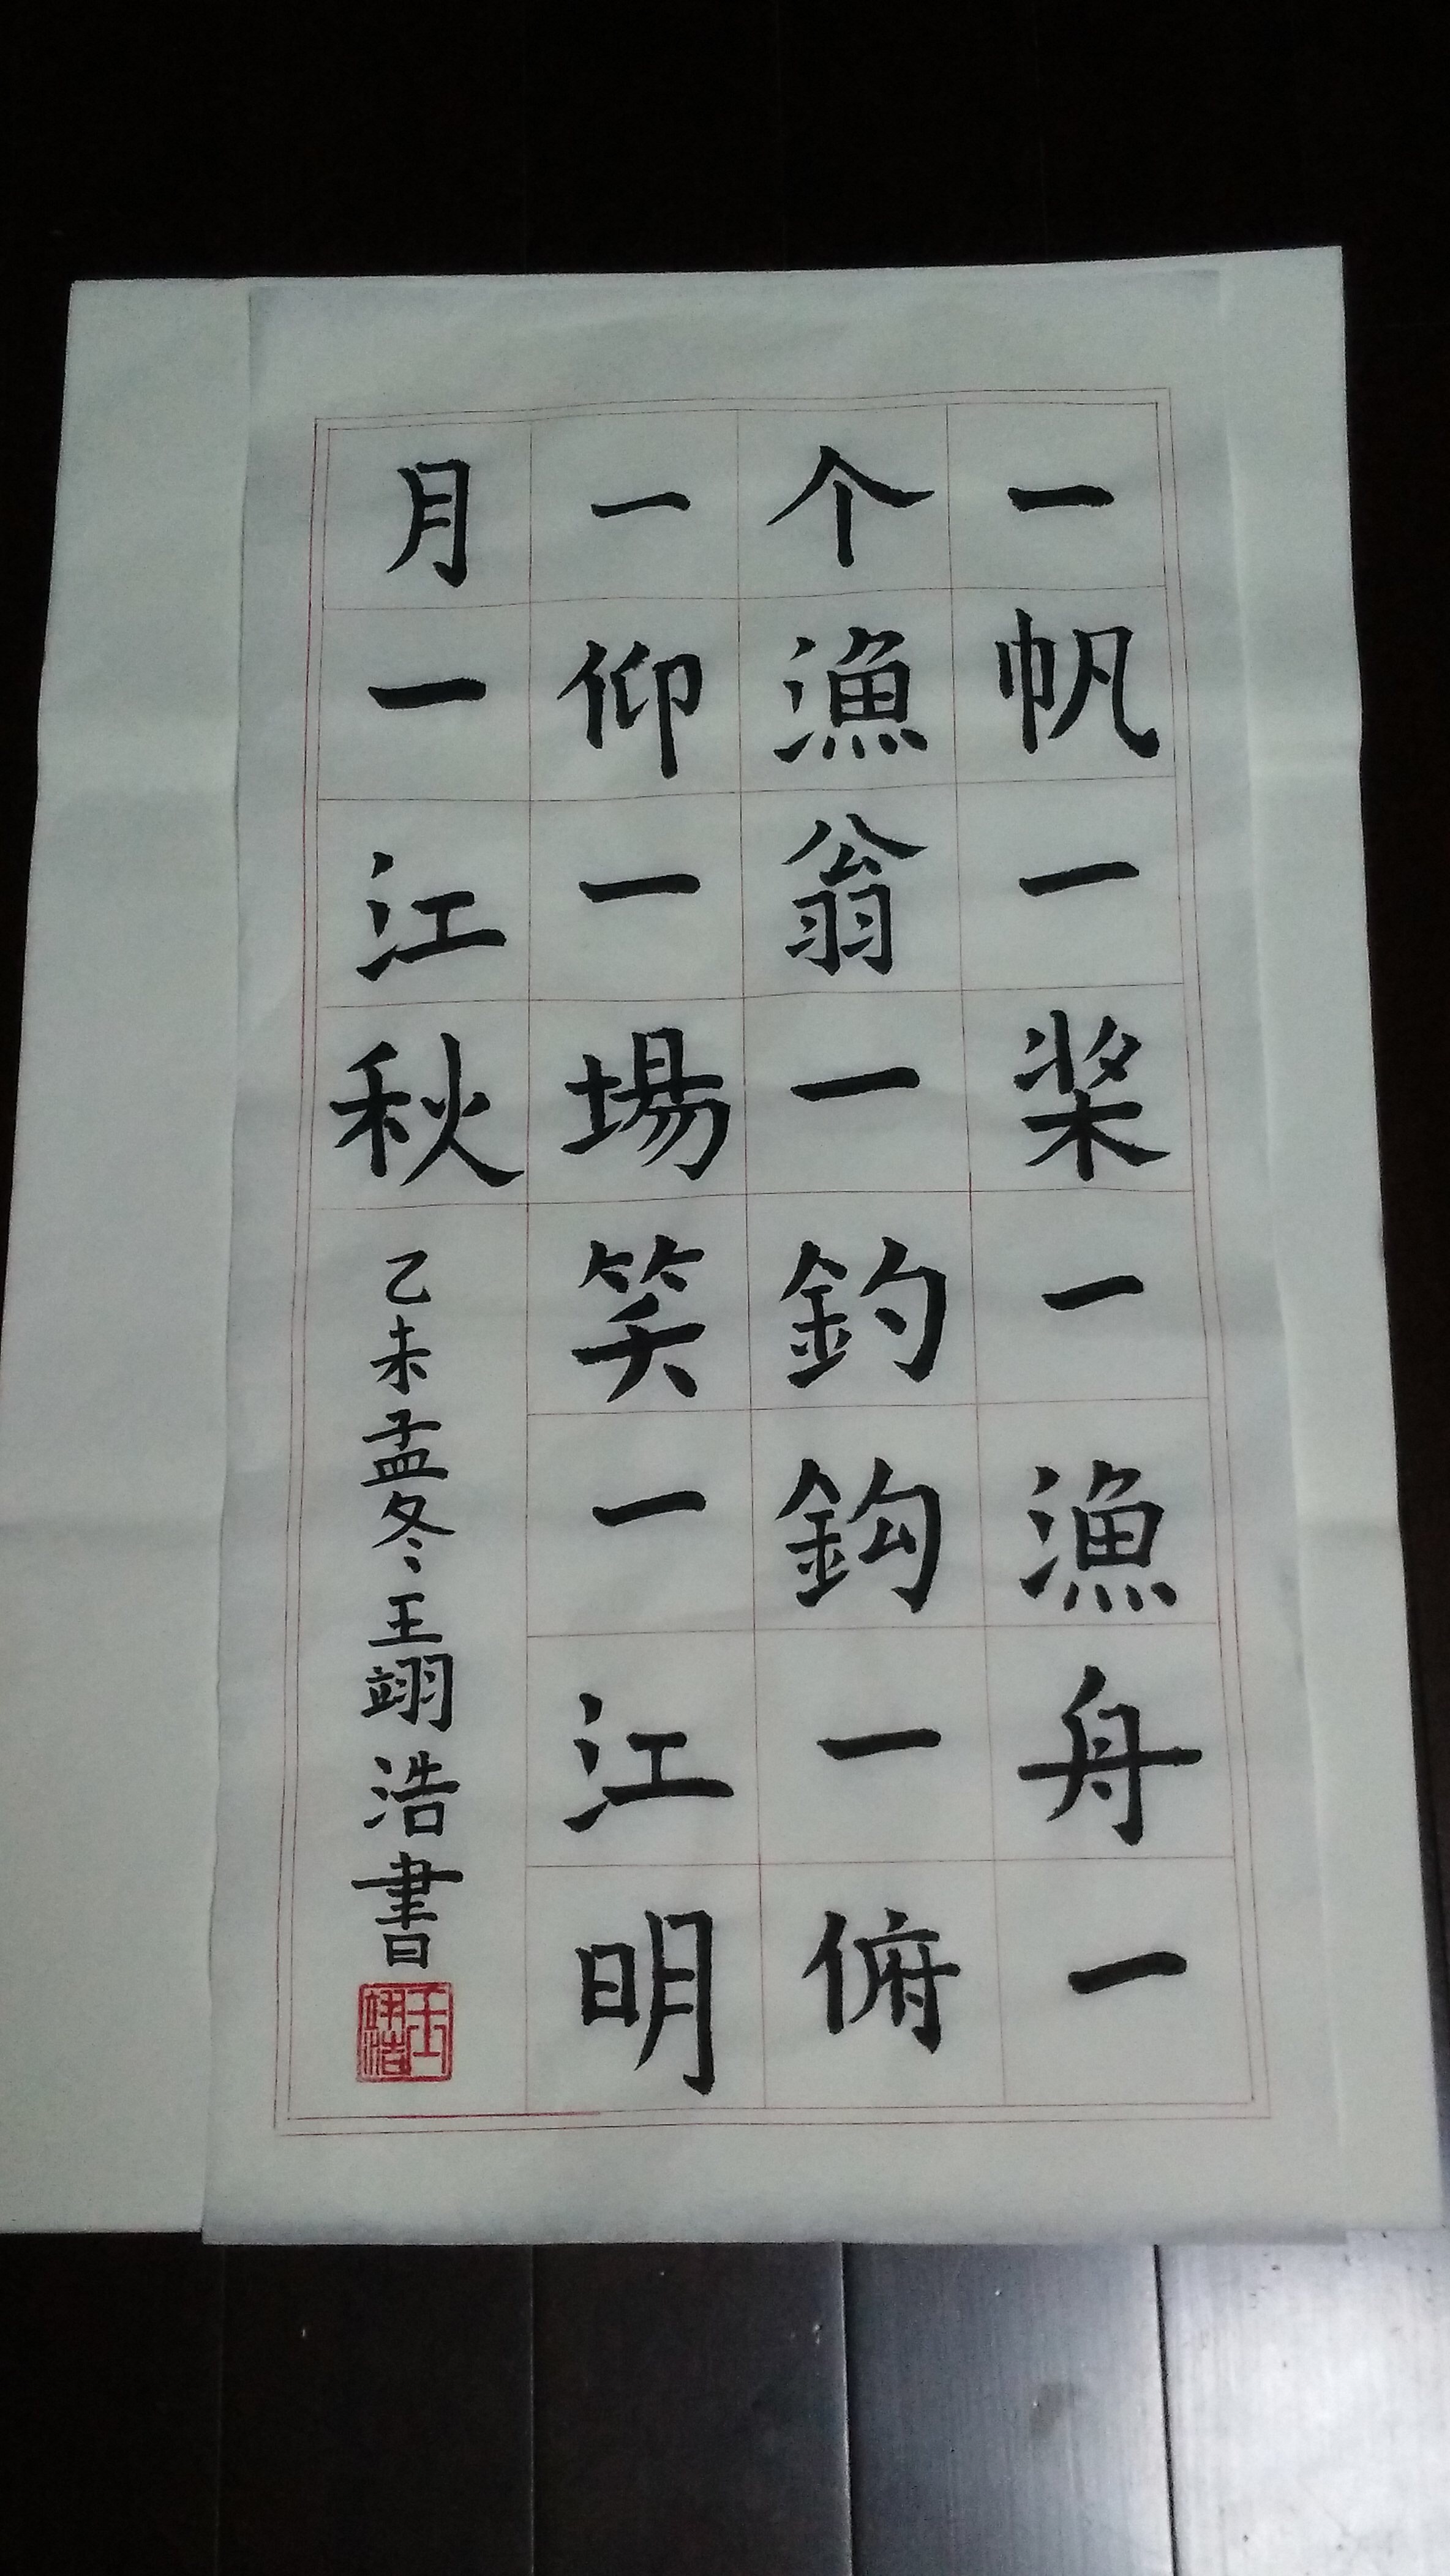 一帆一桨一漁舟一
个漁翁一釣鈎一俯
一仰一場笑一江明
月一江秋
乙未孟冬王翊浩書
王翊浩